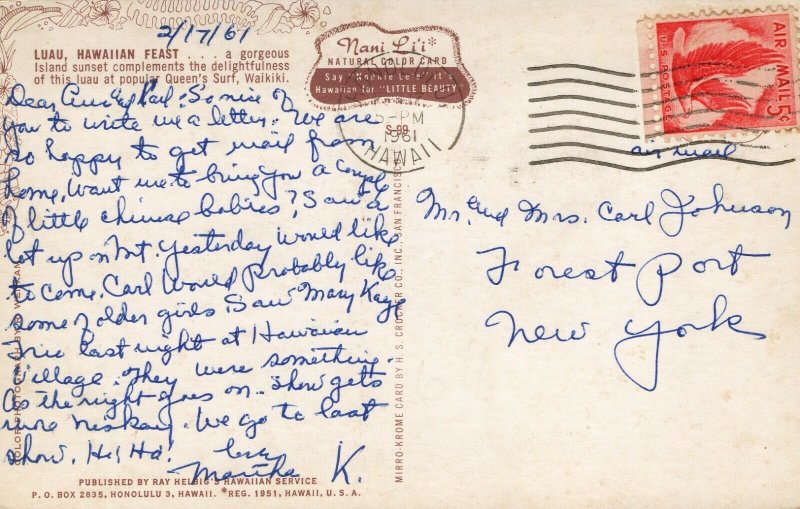 2/17/61
LUAU, HAWAIIAN FEAST . . . a gorgeous
Island sunset complements the delightfulness
of this luau at popular Queen's Surf, Waikiki.
Nani Li'i*
NATURAL COLOR CARD
Say "Nahnie Le'e" it's
Hawaiian for "LITTLE BEAUTY"
S-99
PM
1961
HAWAII
U.S. POSTAGE
AIR MAIL 5¢
air mail
Dear Carl: So nice of
you to write me a letter. We are
so happy to get mail from
home. Want me to bring you a couple
of little chinese babies? Saw a
lot up on Mt. Yesterday would like
to come. Carl would Probably like
some of older girls. Saw Mary Kaye
Trio last night at Hawaiian
Village. They were something.
As the night goes on show gets
more riskay. We go to last
show. He! Ha!
Martha K.
Mr. and Mrs. Carl Johnson
Forest Port
New York
MIRRO-KROME CARD BY H. S. CROCKER CO., INC., SAN FRANCISCO
COLOR PHOTO
PUBLISHED BY RAY HELBIG'S HAWAIIAN SERVICE
P. O. BOX 2835, HONOLULU 3, HAWAII. *REG. 1951, HAWAII, U. S. A.